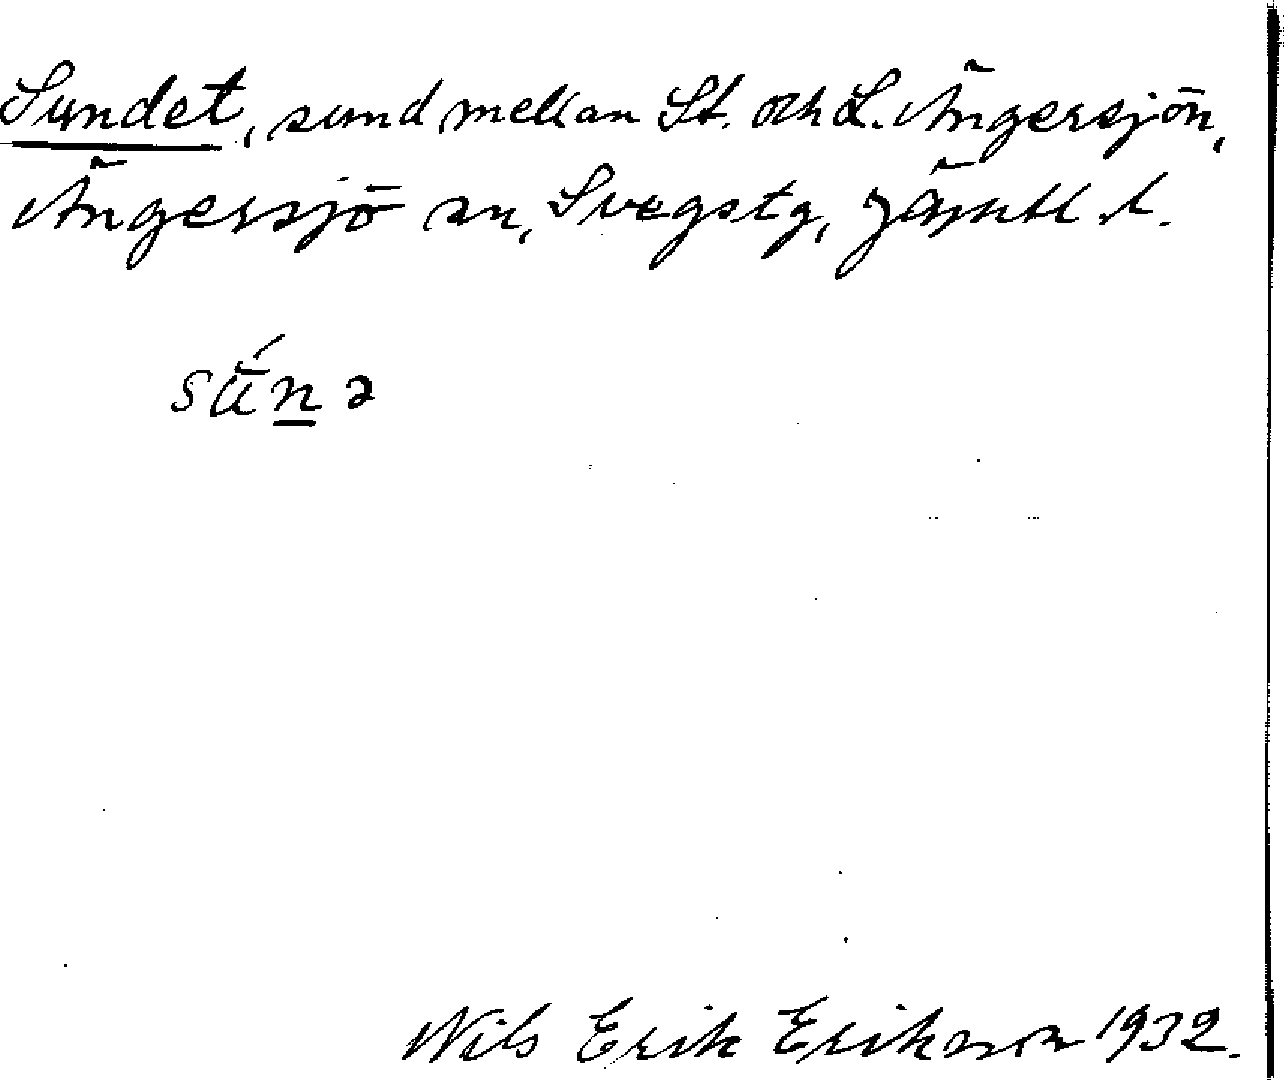 Sundet, sund mellan St. och L. Ängersjön,
Ängersjö sn, Svegs tg, Jämtl. l.
sú̄n̲ə
Nils Erik Erikson 1932.